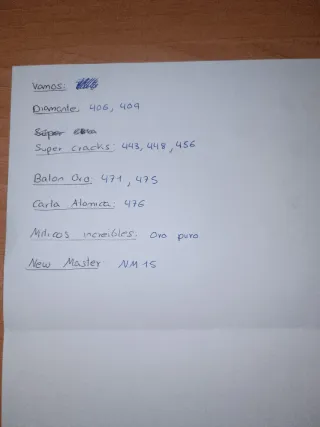 Vamos:
Diamante: 406, 409
Súper
Super cracks: 443, 448, 456
Balon Oro: 471, 475
Carla Atomica: 476
Miticos increibles: Oro puro
New Master NM 15